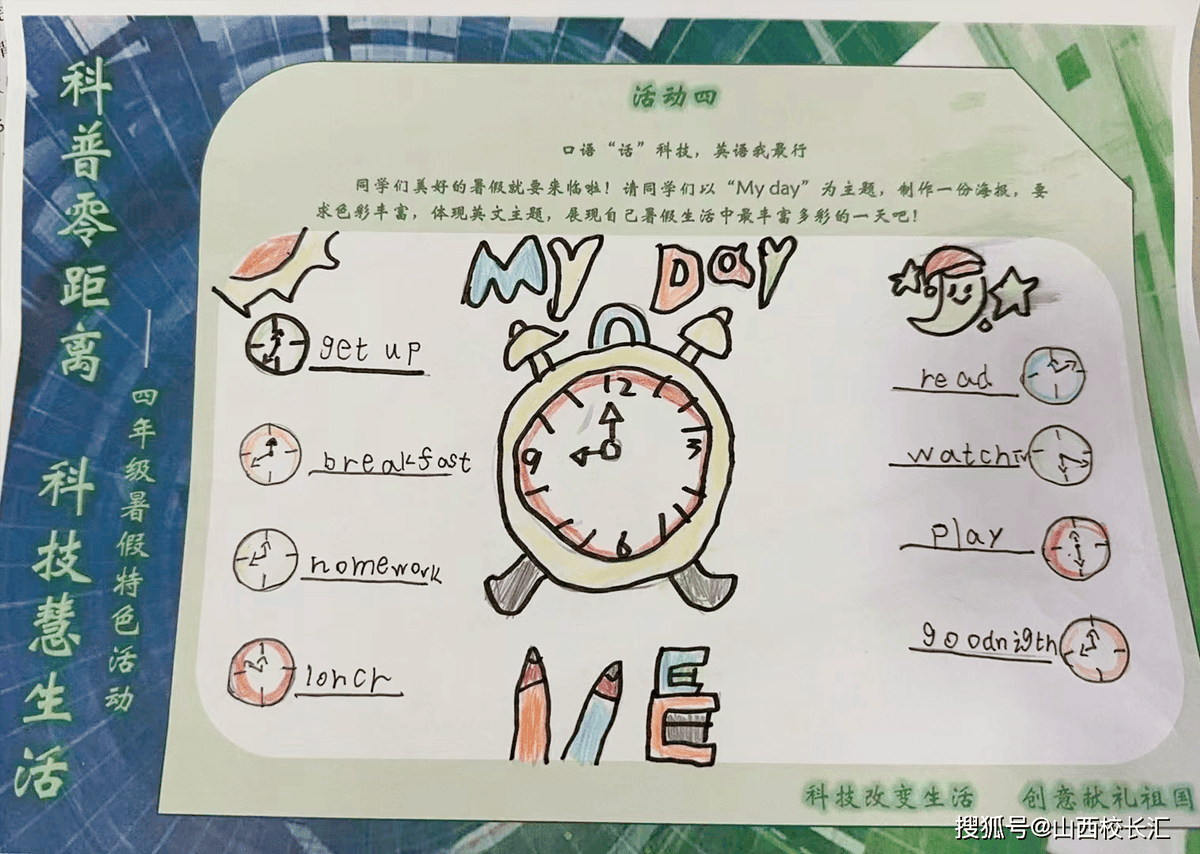 科普零距离 科技慧生活
——四年级暑假特色活动
活动四
口语“话”科技，英语我最行
同学们美好的暑假就要来临啦！请同学们以“My day”为主题，制作一份海报，要
求色彩丰富，体现英文主题，展现自己暑假生活中最丰富多彩的一天吧！
My Day
get up
breakfast
homework
lonch
12
3
6
9
read
watchTV
play
goodnigth
科技改变生活 创意献礼祖国
搜狐号@山西校长汇